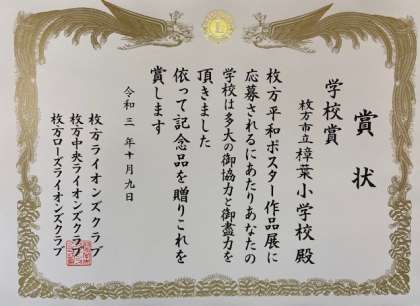 賞状
学校賞
枚方市立樟葉小学校殿
枚方平和ポスター作品展に
応募されるにあたりあなたの
学校は多大の御協力と御盡力を
頂きました
依って記念品を贈りこれを
賞します
令和三年十月九日
枚方ライオンズクラブ
枚方中央ライオンズクラブ
枚方ローズライオンズクラブ